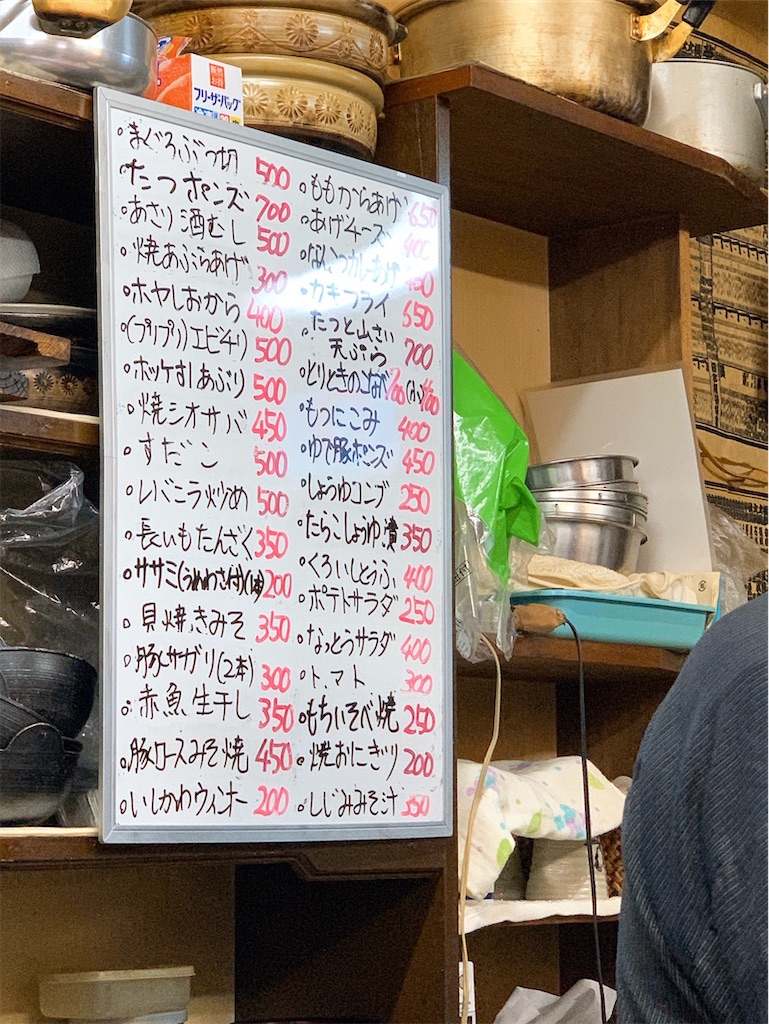 フリーザーバッグ
。まぐろぶつ切 500
。たつポンズ 700
。あさり酒むし 500
。焼あぶらあげ 300
。ホヤしおから 400
。(プリプリ)エビチリ 500
。ホッケすしあぶり 500
。焼シオサバ 450
。すだこ 500
。レバニラ炒め 500
。長いもたんざく 350
。ササミ 200
。貝焼きみそ 350
。豚サガリ(2本) 300
。赤魚生干し 350
。豚ロースみそ焼 450
。いしかわウィンナー 200
。ももからあげ 650
。あげチーズ 400
。カキフライ 650
。たつと山さい
天ぷら 700
。もつにこみ 400
。ゆで豚ポンズ 450
。しょうゆコンブ 250
。たらこしょうゆ漬 350
。くろいしとうふ 400
。ポテトサラダ 250
。なっとうサラダ 400
。トマト 300
。もちいそべ焼 250
。焼おにぎり 200
。しじみみそ汁 350